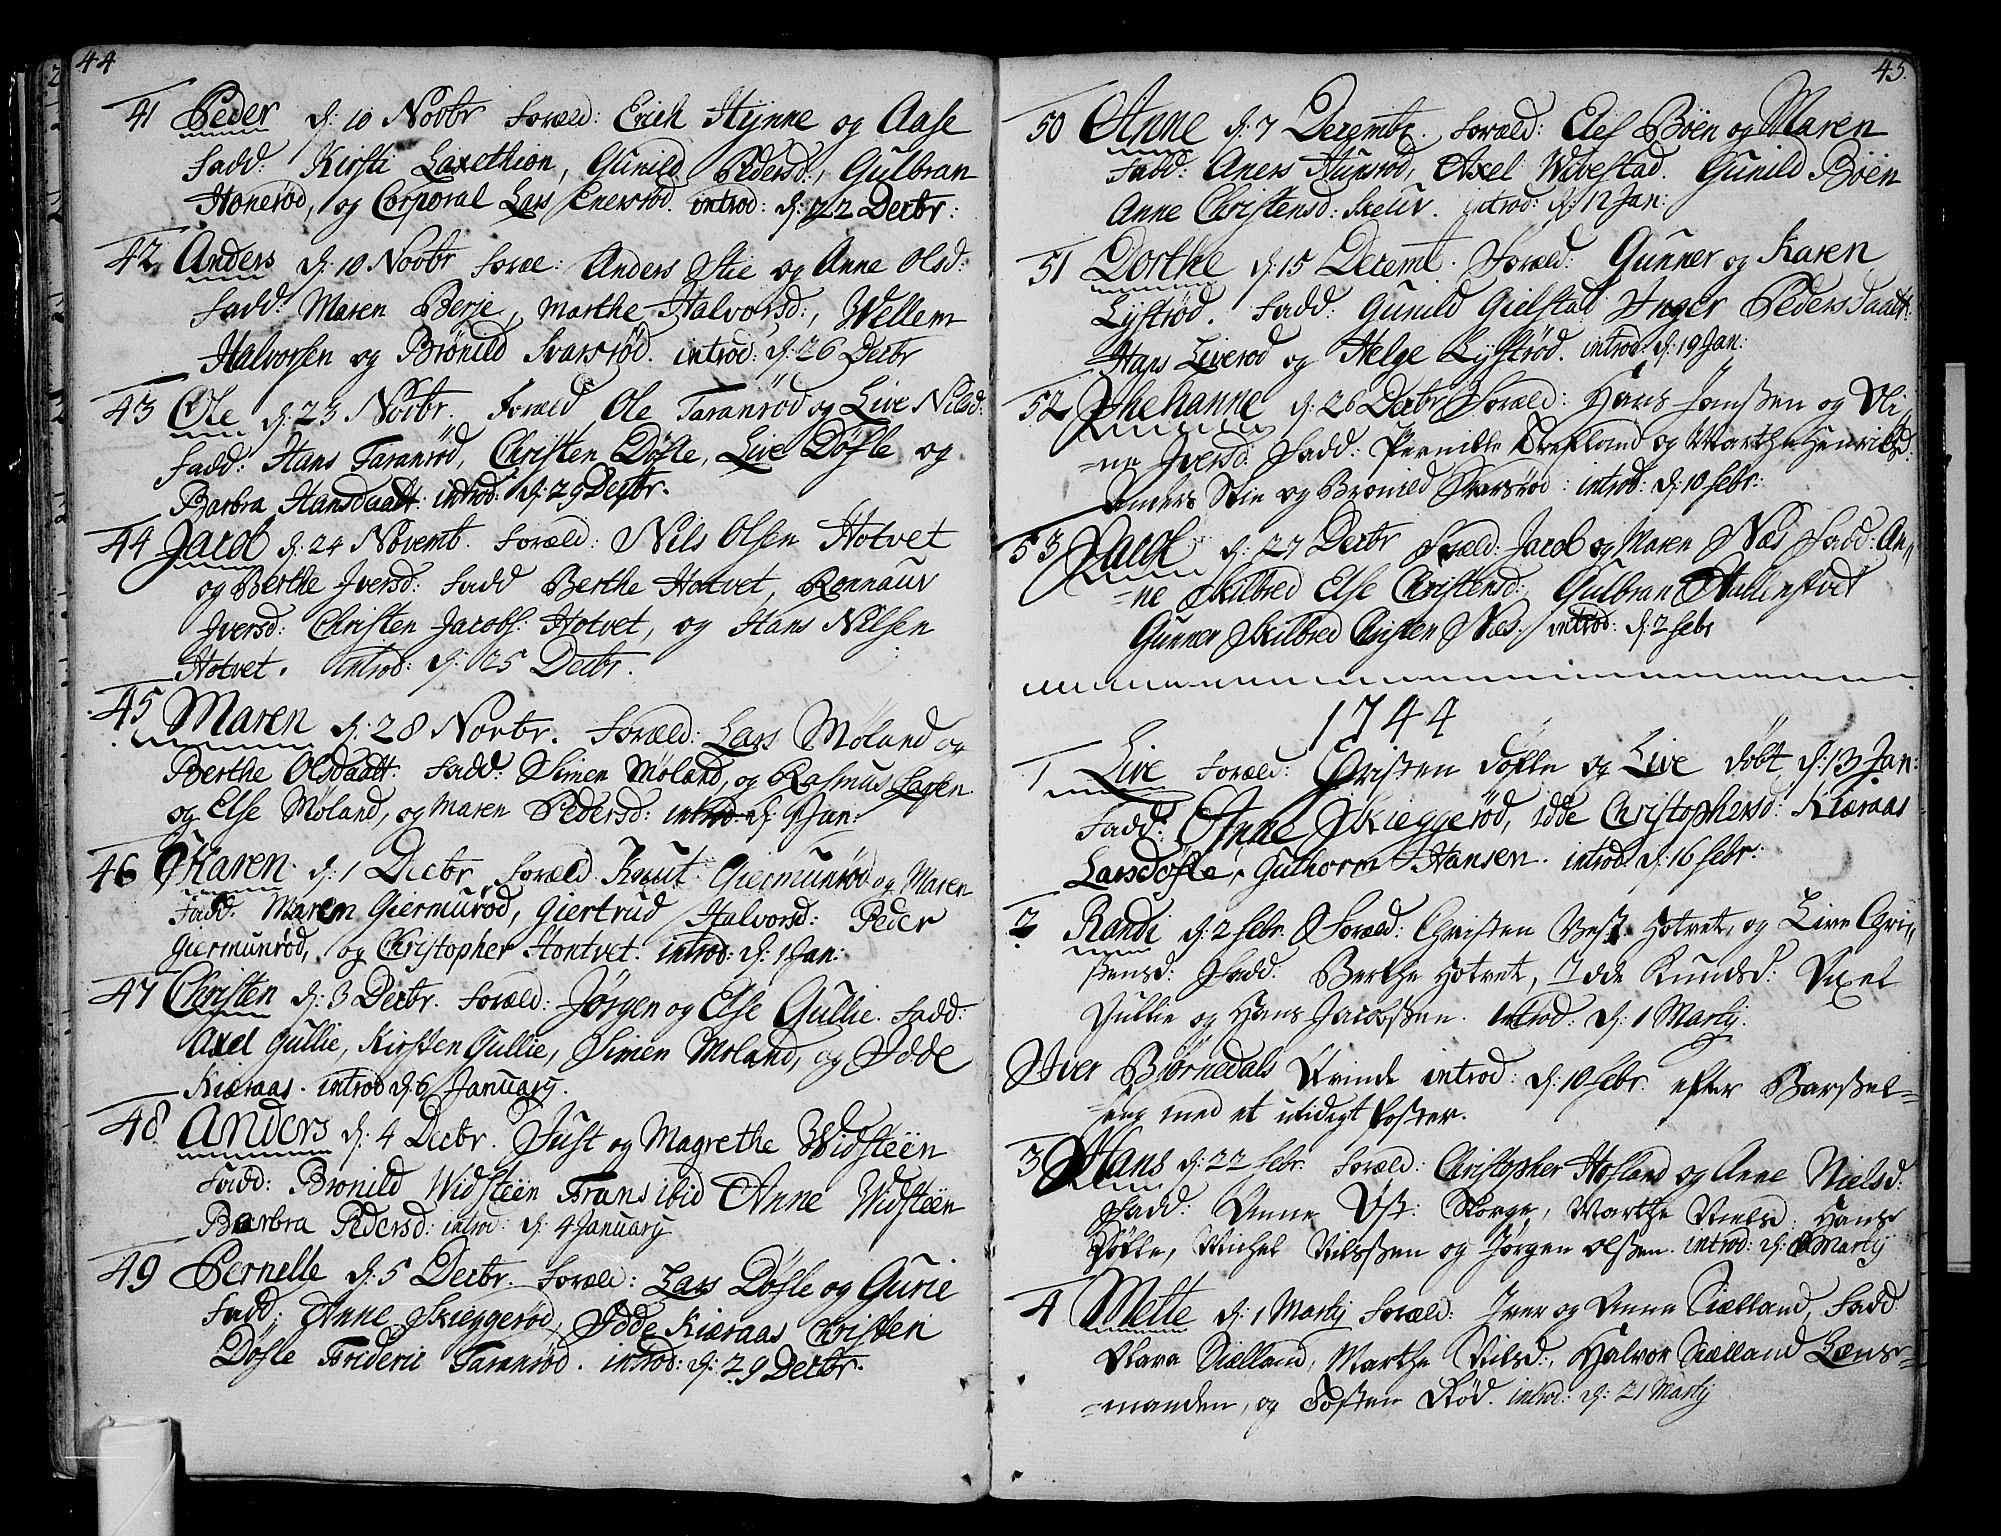 44
41 Peder d: 10 Novbr Foræld: Erich Hynne og Aase
Fadd: Kirsti Laxethion, Gunild Pedersd:, Gulbran
Honerød, og Corporal Lars Enersrød. introd: d: 22 Decbr:
42 Anders d: 10 Novbr Foræ: Anders Stie og Anne Olsd:
Fadd: Maren Berje, Marthe Halvorsd:, Wellem
Halvorsen og Brønild Svarsrød. introd: d: 26 Decbr
43 Ole d: 23 Novbr. Foræld Ole Taranrød og Live Nilsd:
Fadd: Hans Taranrød, Christen Døfle, Live Døfle og
Barbra Hansdaatt: introd: d: 29 Decbr.
44 Jacob d: 24 Novemb. Foræld: Nils Olsen Hotvet
og Berthe Jversd: Fadd Berthe Hotvet, Ronnauv
Jversd: Christen Jacobs: Hotvet, og Hans Nilsen
Hotvet. introd: d: 25 Decbr.
45 Maren d: 28 Novbr. Foræld: Lars Møland og
Berthe Olsdaatt: Fadd: Simen Møland, og Rasmus
og Else Møland, og Maren Pedersd: introd: d: 1 Jan:
46 Karen. d: 1 Decbr Foræld Knut Giermunrød og Maren
Fadd. Maren Giermurød, Giertrud Halvorsd: Peder
Giermunrød, og Christopher Hontvet. introd: d: 1 Jan:
47 Christen d: 3 Decbr. Foræld: Jørgen og Else Gullie. Fadd:
Axel Gullie, Kirsten Gullie, Simen Moland, og Idde
Kiæraas. introd d: 6 January.
48 Anders d: 4 Decbr. Just og Magrethe Widsteen
Fadd: Bronild Widsteen Frans ibid Anne Widsteen
Barbra Pedersd: introd: d: 4 January
49 Pernelle d: 5 Decbr. Foræld: Lars Døfle og Gurie
Fadd: Anne Skieggerød, Idde Kiæraas Christen
Døfle Frideric Taranrød. introd: d: 29 Decbr.
45.
50 Anne d: 7 Decembr. Foræld: Elef Bøen og Maren
Fadd: Aners Hunsrød, Axel Wivestad. Gunild Bøen
Anne Christensd: Skeuv. introd: d: 12 Jan:
51 Dorthe d: 15 Decemb. Foræld: Gunner og Karen
Lystrød. Fadd: Gunild Gielstad Inger Pedersdaatt:
Hans Liverød og Helge Lystrød. introd: d: 19 Jan:
52 Jhehanne d: 26 Decbr Foræld: Hans Jansen og Oli,,
=ne Jversd: Fadd: Pernille og Marthe Henriksd:
Anders Stie og Bronild Svarsrød: introd: d: 10 Febr:
53 Jacob d: 27 Decbr Foræld: Jacob og Maren Næs Fadd: An,,
=ne Skilbred Else Christensd: Gulbran Hallenstvet
Gunner Skilbred Christen Næs. introd: d: 2 Febr
1744
1 Live Foræld: Christen Døfle og Live døbt d: 13 Jan:
Fadd: Anne Skieggerød, Idde Christophersd: Kiæraas
Lars Døfle, Guthorm Hansen. introd: d: 16 Febr:
2 Randi d: 2 Febr. Foræld: Christen Vest Hotvet, og Live Chri,,
stensd: Fadd: Berthe Hotvet, Idde Knudsd: Axel
Gullie og Hans Jacobsen. Introd: d: 1 Martij.
Iver Bjørnedals Qvinde introd: d: 10 Febr. efter Barsel=
=eng med et utidigt foster.
3 Hans d: 22 Febr. Foræld: Christopher Hofland og Anne Nielsd:
Fadd: Anne Øst: Skorge, Marthe Nielsd: Hans
Døfle, Michel Nilssen og Jørgen Olsen. introd: d: Martij
4 Mette d: 1 Martij Foræld: Iver og Anne Siælland, Fadd
Mara Siælland, Marthe Nilsd:, Halvor Siælland Læns=
=manden, og Tosten Rød. introd: d: 21 Martij